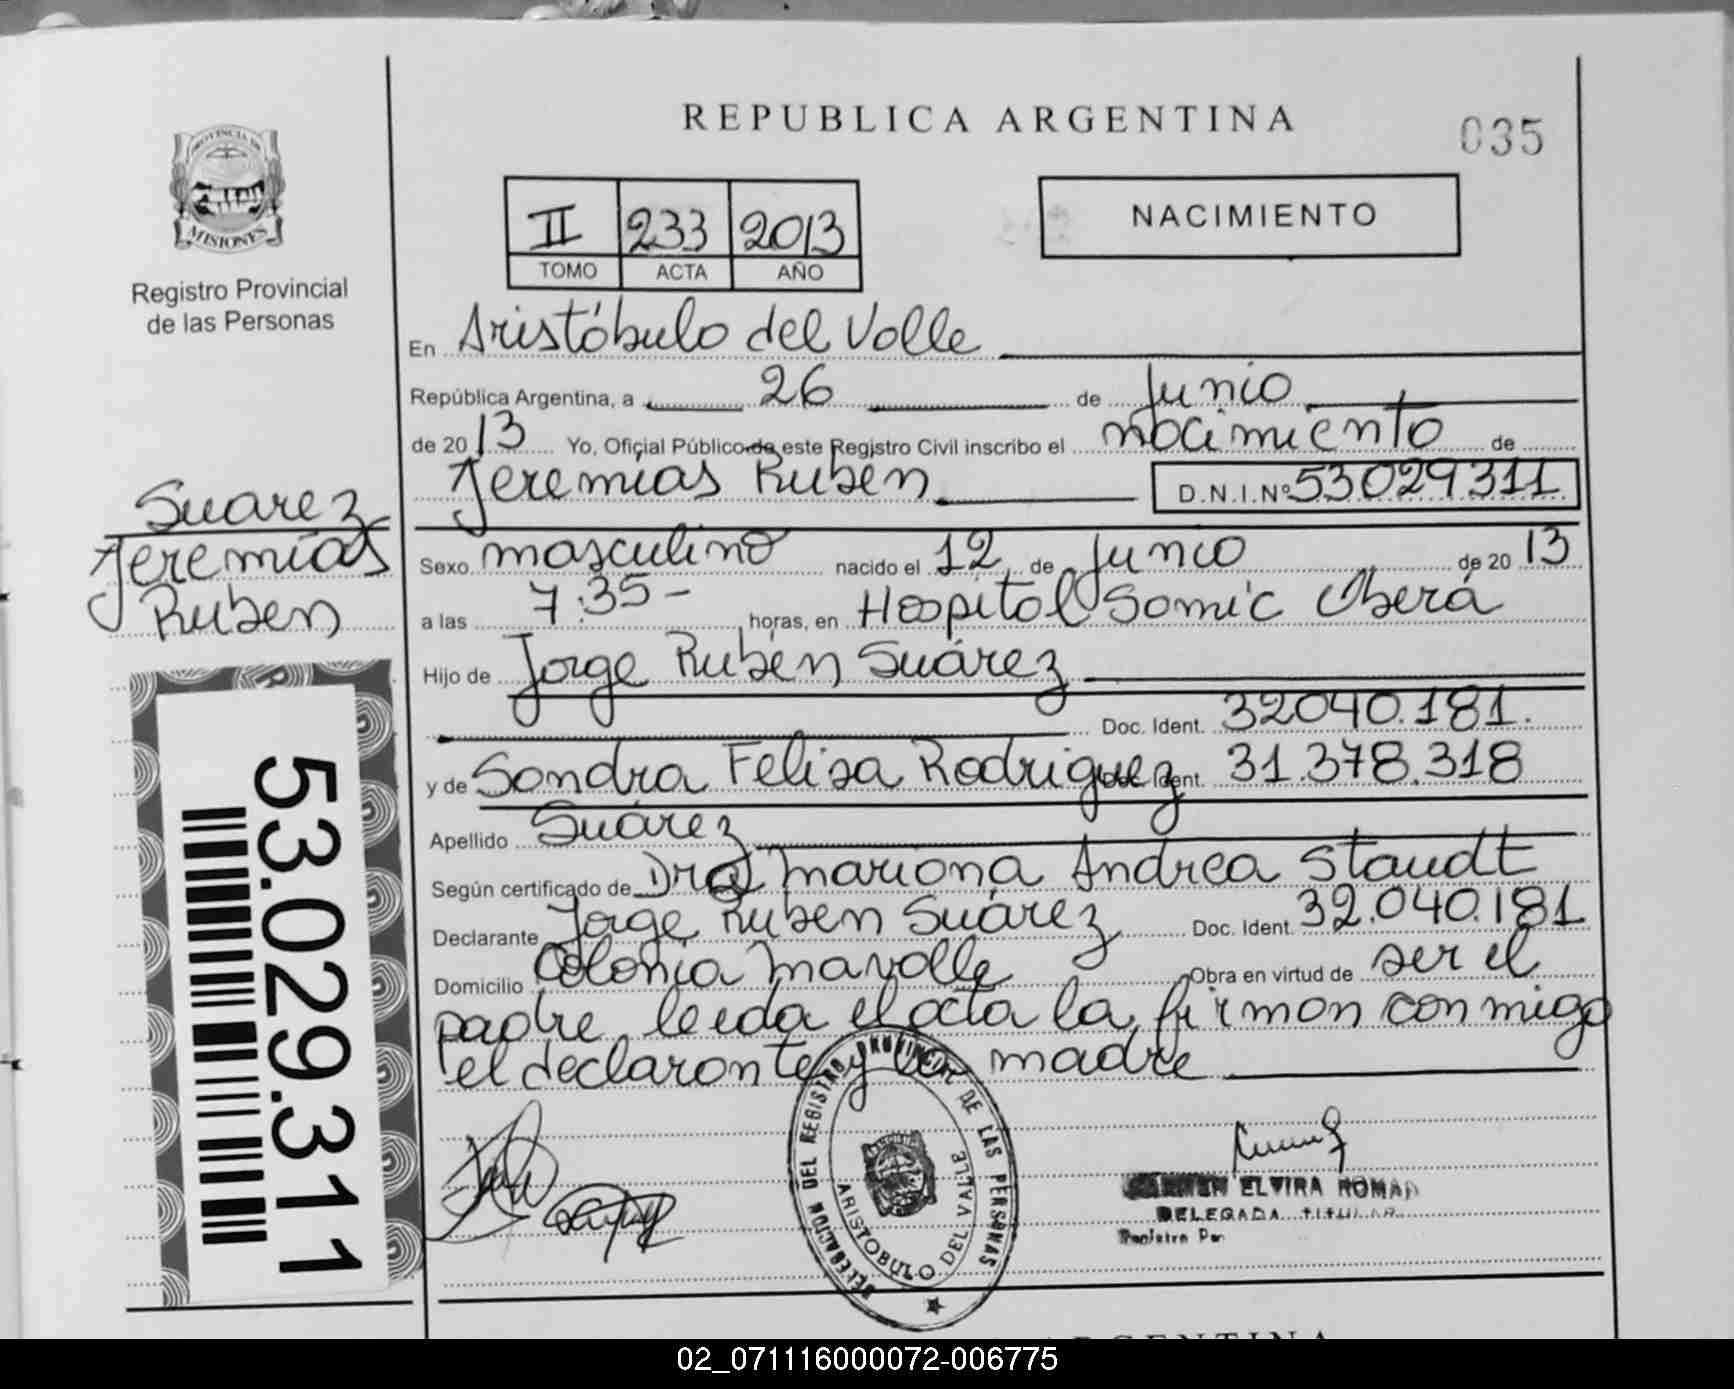 REPUBLICA ARGENTINA
035
PROVINCIA DE
MISIONES
Registro Provincial
de las Personas
II 233 2013
TOMO ACTA AÑO
NACIMIENTO
En Aristóbulo del Valle
República Argentina, a 26 de Junio
de 2013 Yo, Oficial Público de este Registro Civil inscribo el nacimiento de
Jeremías Ruben D.N.I.Nº 53029311
Suarez
Jeremías
Ruben
Sexo masculino nacido el 12 de Junio de 2013
a las 7:35- horas, en Hospital Samic Oberá
Hijo de Jorge Rubén Suárez
Doc. Ident. 32040.181.
y de Sandra Felisa Rodriguez Doc. Ident. 31.378.318
Apellido Suárez
Según certificado de Dra Mariana Andrea Staudt
Declarante Jorge Ruben Suárez Doc. Ident. 32.040.181
Domicilio Colonia Obra en virtud de ser el
padre, leida el acta la firman conmigo
el declarante y la madre
53.029.311
DELEGACION DEL REGISTRO PROVINCIAL DE LAS PERSONAS
ARISTOBULO DEL VALLE
CARMEN ELVIRA ROMAN
DELEGADA TITULAR
Registro Per
ARGENTINA
02_071116000072-006775